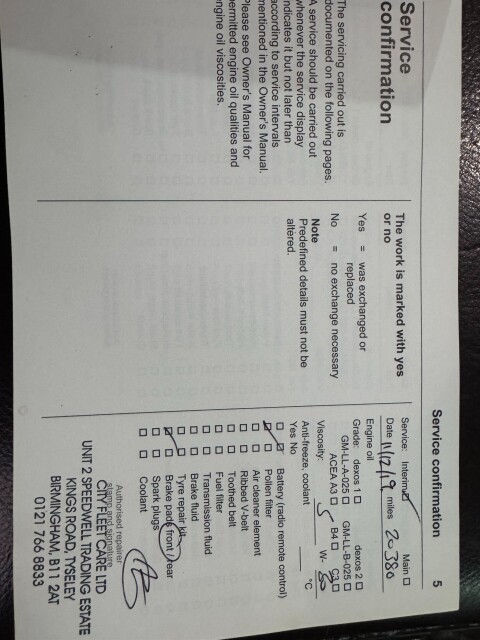 Service
confirmation
The servicing carried out is
documented on the following pages.
A service should be carried out
whenever the service display
indicates it but not later than
according to service intervals
mentioned in the Owner's Manual.
Please see Owner's Manual for
permitted engine oil qualities and
engine oil viscosities.
The work is marked with yes
or no
Yes = was exchanged or
replaced
No = no exchange necessary
Note
Predefined details must not be
altered.
Service confirmation 5
Service: Interim ☑ Main ☐
Date 11/12/19 miles 20380
Engine oil
Grade: dexos 1 ☐ dexos 2 ☐
GM-LL-A-025 ☐ GM-LL-B-025 ☐
ACEA A3 ☐ B4 ☐ C3 ☐
Viscosity: 5 W- 30
Anti-freeze, coolant °C
Yes No
☐ ☐ Battery (radio remote control)
☑ ☐ Pollen filter
☐ ☐ Air cleaner element
☐ ☐ Ribbed V-belt
☐ ☐ Toothed belt
☐ ☐ Fuel filter
☐ ☐ Transmission fluid
☐ ☐ Brake fluid
☐ ☐ Tyre repair kit
☑ ☐ Brake pads front / rear
☐ ☐ Spark plugs
☐ ☐ Coolant
Authorised repairer
stamp and signature
CITY FLEET CARE LTD
UNIT 2 SPEEDWELL TRADING ESTATE
KINGS ROAD, TYSELEY
BIRMINGHAM, B11 2AT
0121 766 8833